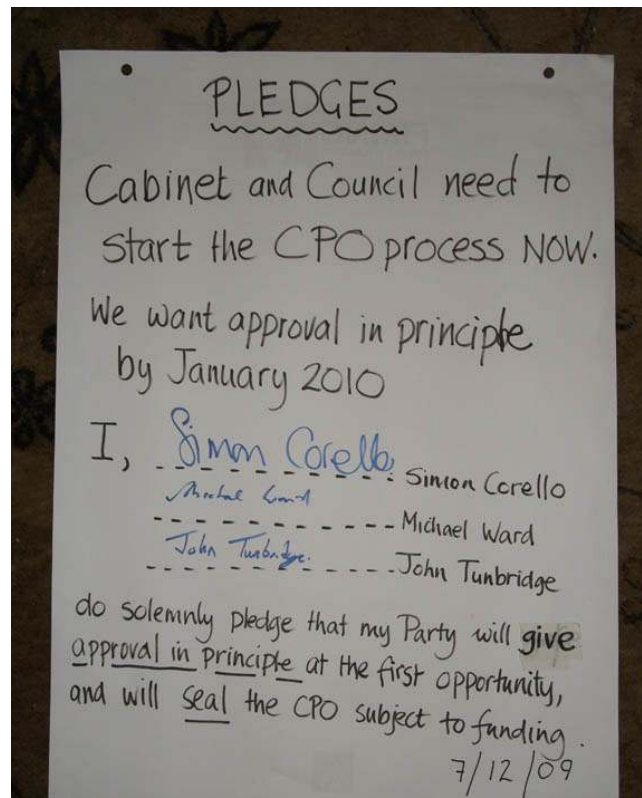 PLEDGES
Cabinet and Council need to
start the CPO process NOW.
We want approval in principle
by January 2010
I, Simon Corello Simon Corello
Michael Ward Michael Ward
John Tunbridge. John Tunbridge
do solemnly pledge that my Party will give
approval in principle at the first opportunity,
and will seal the CPO subject to funding.
7/12/09